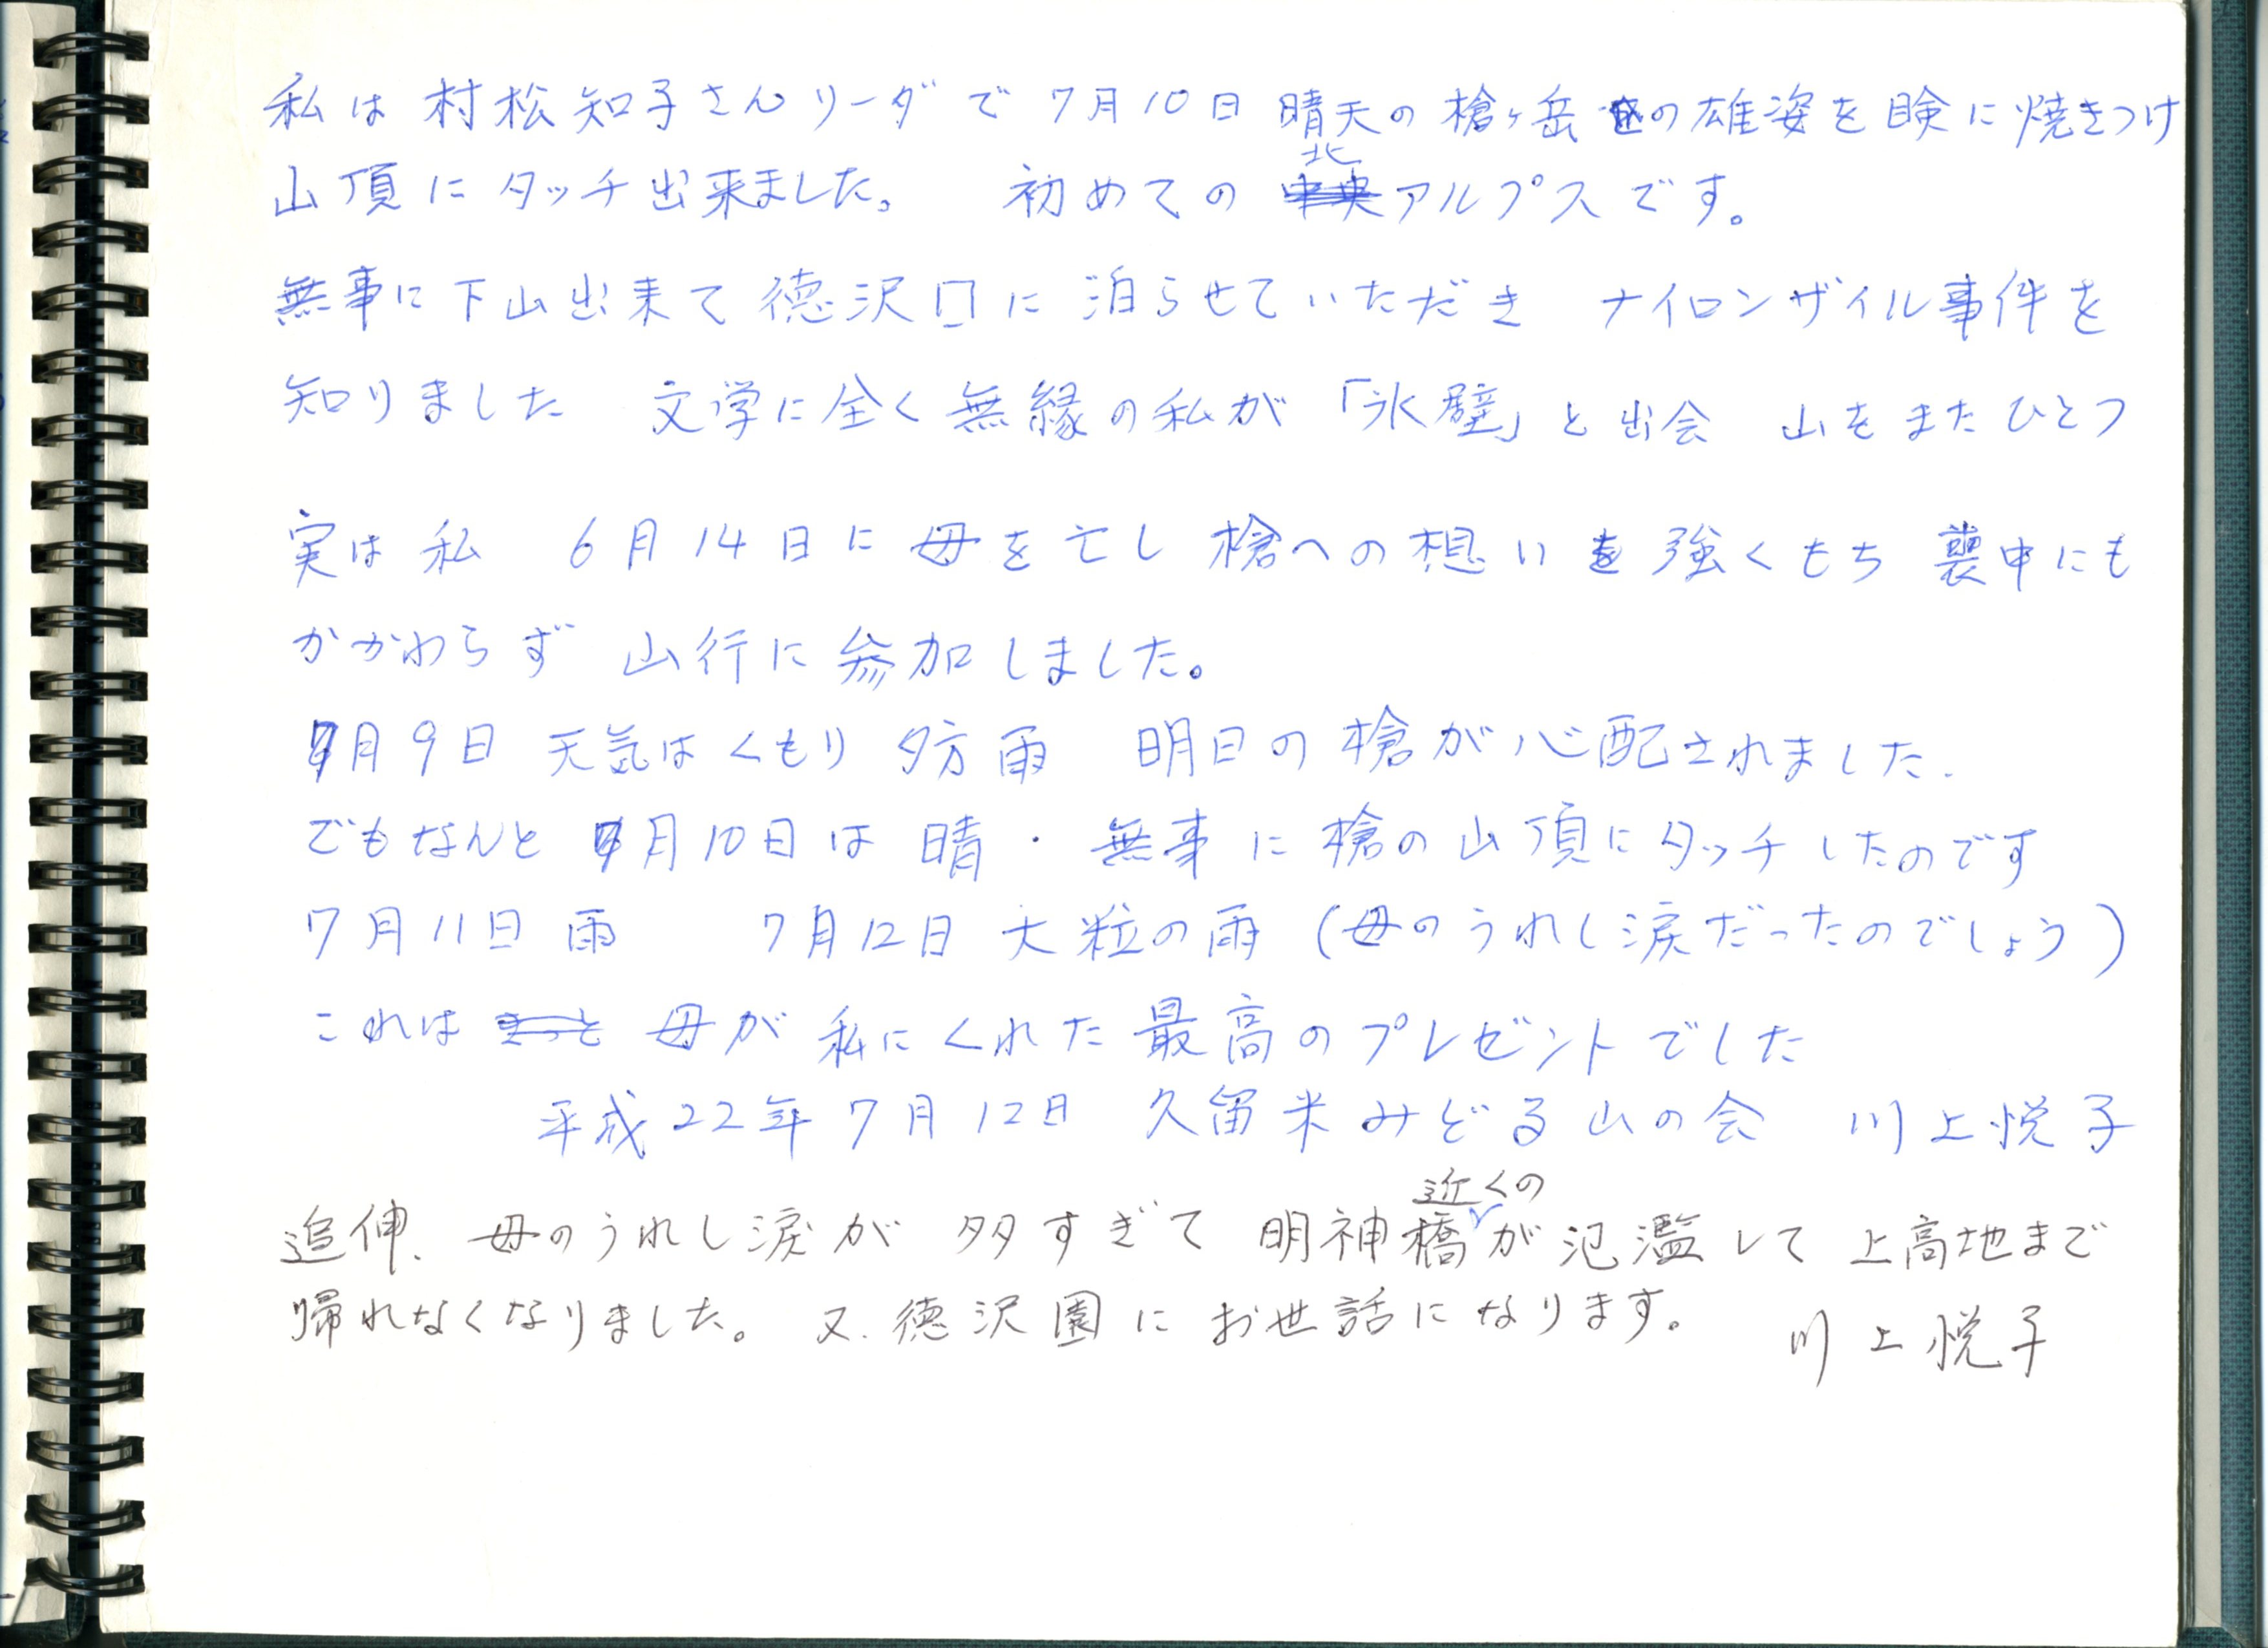 私は村松知子さんリーダで7月10日 晴天の槍ヶ岳の雄姿を瞼に焼きつけ
山頂にタッチ出来ました。 初めての北アルプスです。
無事に下山出来て徳沢口に泊らせていただき ナイロンザイル事件を
知りました 文学に全く無縁の私が「氷壁」と出会 山をまたひとつ
実は私 6月14日に母を亡し 槍への想いを強くもち 喪中にも
かかわらず 山行に参加しました。
7月9日 天気はくもり 夕方雨 明日の槍が心配されました.
でもなんと 7月10日は 晴・無事に槍の山頂にタッチしたのです
7月11日 雨 7月12日 大粒の雨 (母のうれし涙だったのでしょう)
これは 母が私にくれた最高のプレゼントでした
平成22年7月12日 久留米みどる山の会 川上悦子
追伸、母のうれし涙が多すぎて 明神橋近くのが氾濫して上高地まで
帰れなくなりました。又、徳沢園にお世話になります。 川上悦子